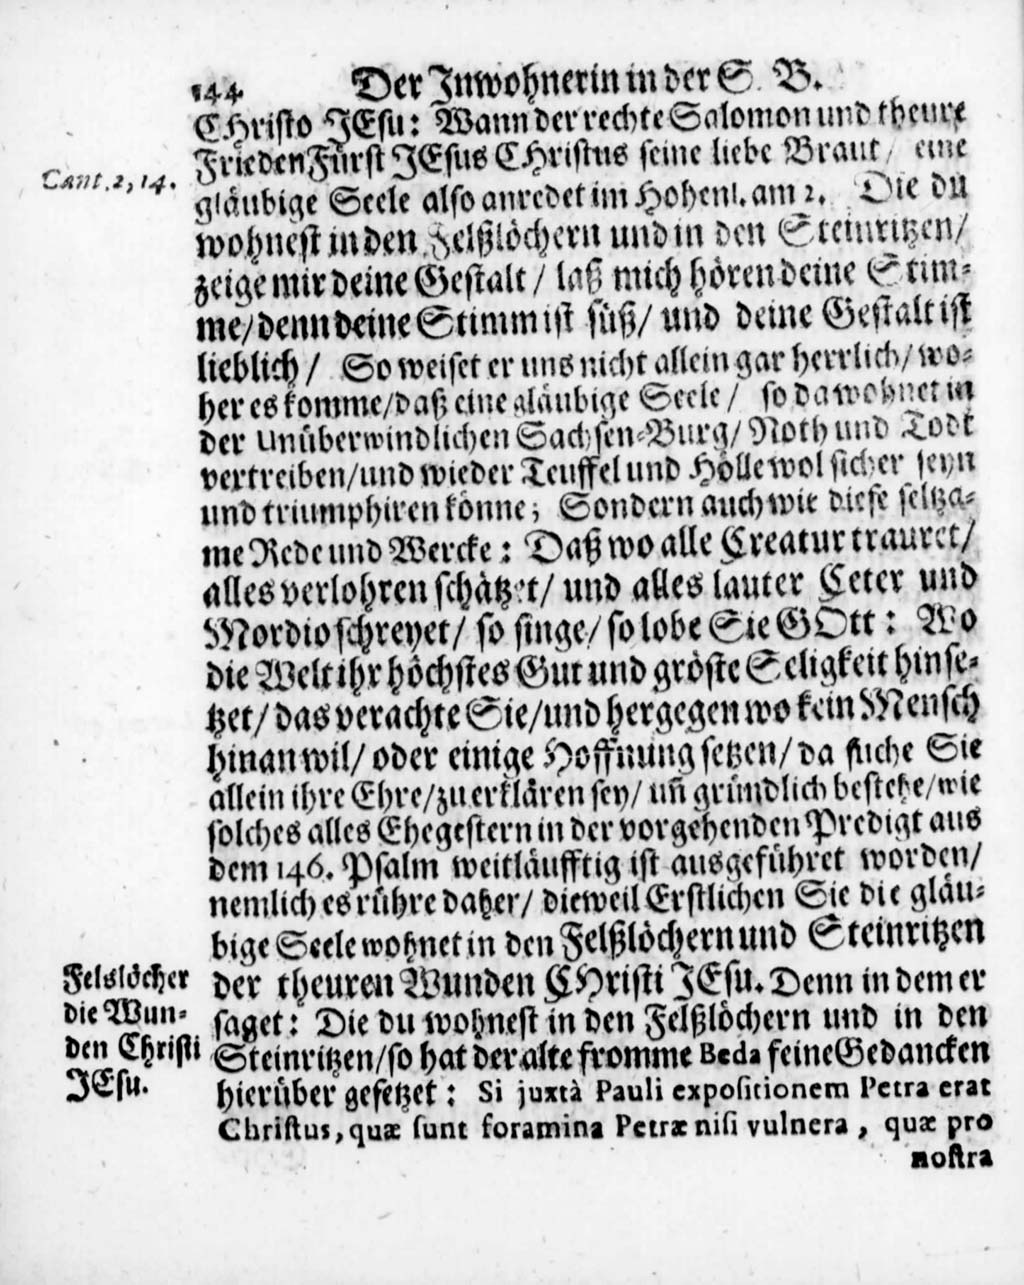 144 Der Inwohnerin in der S. B.
CHristo JEsu: Wann der rechte Salomon und theure
FriedenFürst JEsus CHristus seine liebe Braut / eine
Cant. 2, 14.
gläubige Seele also anredet im Hohenl. am 2. Die du
wohnest in den Felßlöchern und in den Steinritzen/
zeige mir deine Gestalt / laß mich hören deine Stim-
me/denn deine Stimm ist süß/ und deine Gestalt ist
lieblich / So weiset er uns nicht allein gar herrlich/ wo-
her es komme/daß eine gläubige Seele / so da wohnet in
der unüberwindlichen Sachsen-Burg/ Noth und Todt
vertreiben/und wieder Teuffel und Hölle wol sicher seyn
und triumphiren könne; Sondern auch wie diese seltza-
me Rede und Wercke: Daß wo alle Creatur trauret/
alles verlohren schätzet/ und alles lauter Ceter und
Mordio schreyet/ so singe/ so lobe Sie GOtt: Wo
die Welt ihr höchstes Gut und gröste Seligkeit hinse-
tzet/ das verachte Sie/und hergegen wo kein Mensch
hinan wil/ oder einige Hoffnung setzen/ da suche Sie
allein ihre Ehre/zu erklären sey/ uñ gründlich bestehe/wie
solches alles Ehegestern in der vorgehenden Predigt aus
dem 146. Psalm weitläufftig ist ausgeführet worden/
nemlich es rühre daher/ dieweil Erstlichen Sie die gläu-
bige Seele wohnet in den Felßlöchern und Steinritzen
der theuren Wunden CHristi JEsu. Denn in dem er
saget: Die du wohnest in den Felßlöchern und in den
Steinritzen/so hat der alte fromme Beda seine Gedancken
hierüber gesetzet: Si juxtà Pauli expositionem Petra erat
Christus, quæ sunt foramina Petræ nisi vulnera, quæ pro
nostra
Felslöcher
die Wun-
den Christi
JEsu.